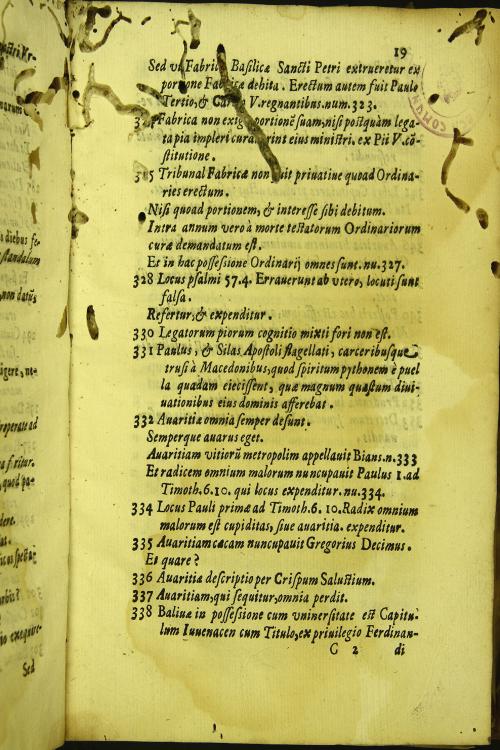 19
Sed ut Fabrica Basilicæ Sancti Petri extrueretur ex
portione Fabrica debita. Erectum autem fuit Paulo
Tertio, & V. regnantibus. num. 323.
Fabrica non portionē suam, nisi postquàm lega-
ta pia impleri eius ministri. ex Pii V. cō-
stitutione.
Tribunal Fabricæ non fuit priuatiue quoad Ordina-
ries erectum.
Nisi quoad portionem, & interesse sibi debitum.
Intra annum vero à morte testatorum Ordinariorum
curæ demandatum est.
Et in hac possessione Ordinarij omnes sunt. nu. 327.
328 Locus psalmi 57.4. Errauerunt ab vtero, locuti sunt
falsa.
Refertur, & expenditur.
330 Legatorum piorum cognitio mixti fori non est.
331 Paulus, & Silas Apostoli flagellati, carceribusque
trusi à Macedonibus, quod spiritum pythonem è puel
la quadam eiecissent, quæ magnum quæstum diui-
uationibus eius dominis afferebat.
332 Auaritiæ omnia semper desunt.
Semperque auarus eget.
Auaritiam vitiorū metropolim appellauit Bians. n. 333
Et radicem omnium malorum nuncupauit Paulus 1. ad
Timoth. 6. 10. qui locus expenditur. nu. 334.
334 Locus Pauli primæ ad Timoth. 6. 10. Radix omnium
malorum est cupiditas, siue auaritia. expenditur.
335 Auaritiam cæcam nuncupauit Gregorius Decimus.
Et quare?
336 Auaritiæ descriptio per Crispum Salustium.
337 Auaritiam, qui sequitur, omnia perdit.
338 Baliuæ in possessione cum vniuersitate est Capitu-
lum Iuuenacen cum Titulo, ex priuilegio Ferdinan-
C 2 di